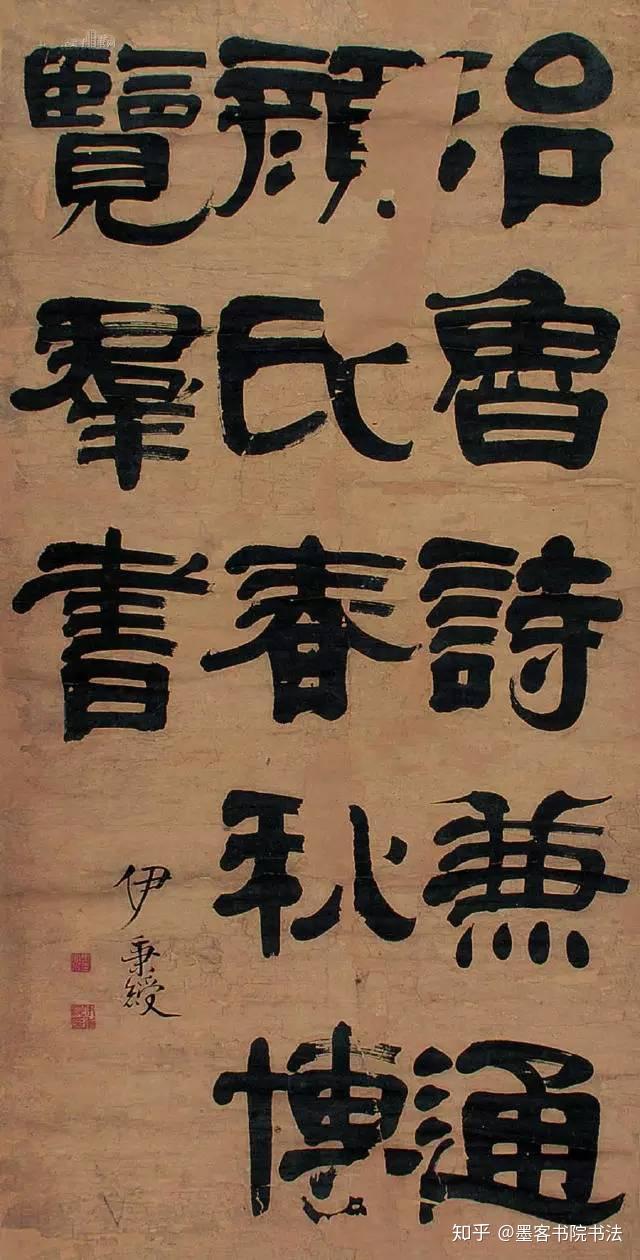 治魯詩兼通
顏氏春秋博
覽羣書
伊秉綬
知乎 @墨客书院书法